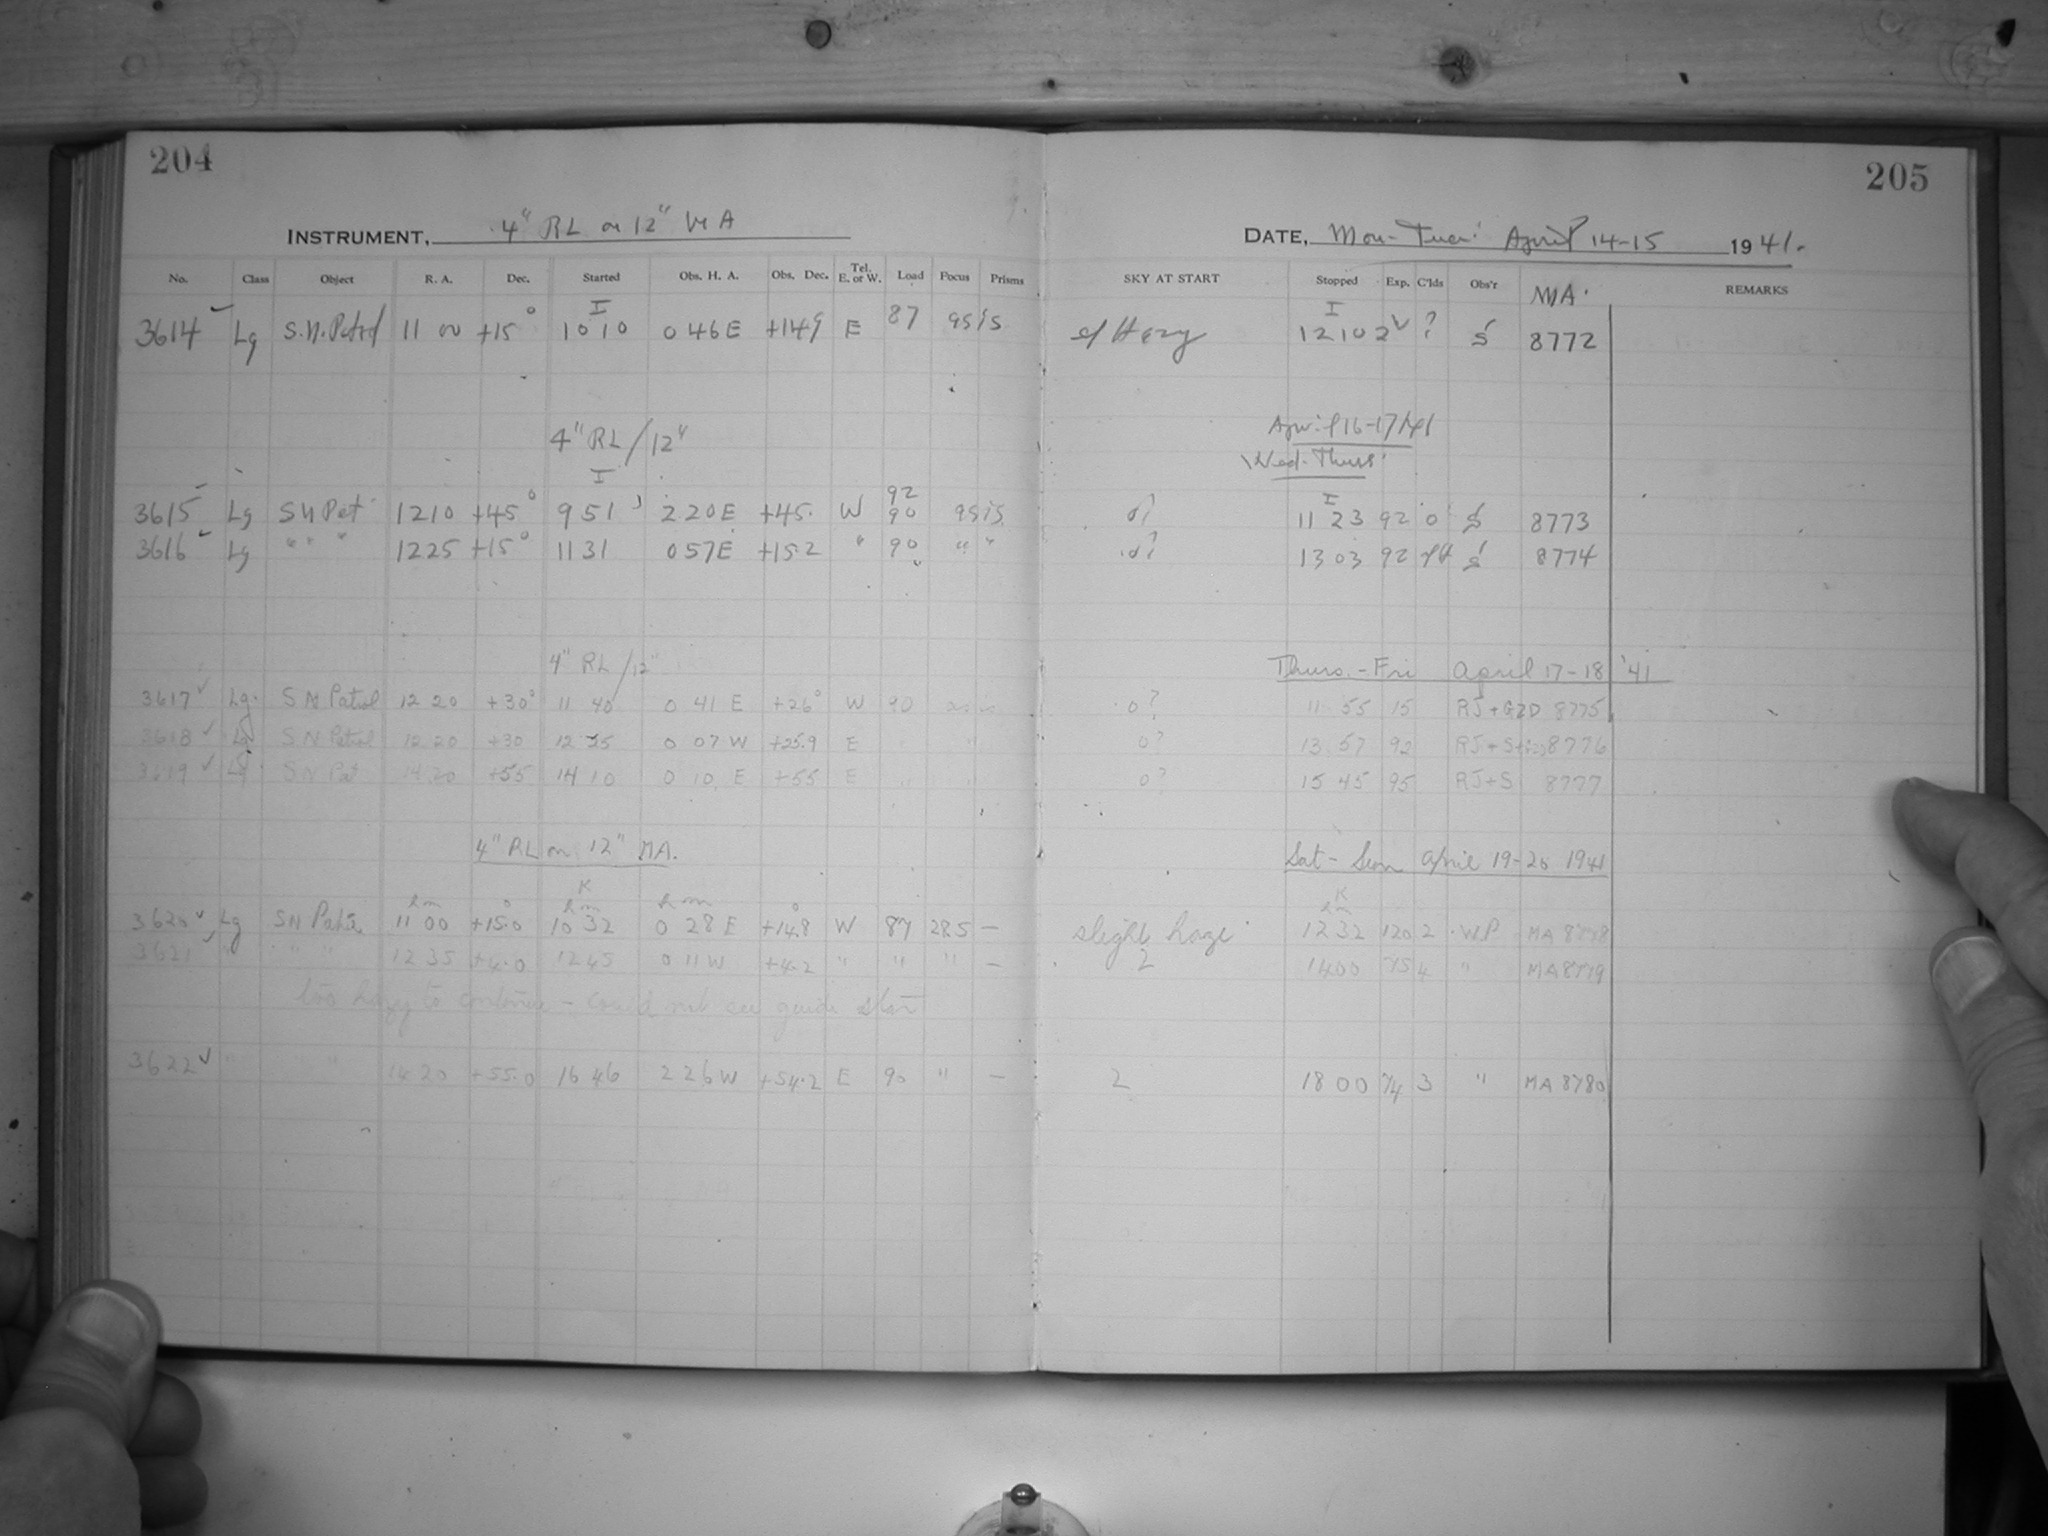 204
205
INSTRUMENT, 4" RL on 12" MA
DATE, Mon-Tues. April 14-15 1941.
No. Class Object R. A. Dec. Started Obs. H. A. Obs. Dec. Tel. E. or W. Load Focus Prisms SKY AT START Stopped Exp. C'lds Obs'r MA REMARKS
I I
3614 Lg S.N. Patrol 11 00 +15° 10 10 0 46 E +14.9 E 87 as is Hazy 12 10 ? S 8772
4" RL/12" April 16-17/41
I Wed-Thurs
3615 Lg S N Pat 12 10 +45° 9 51 2 20 E +45. W 92 90 as is 0? I 11 23 92 0 S 8773
3616 Lg " " " 12 25 +15° 11 31 0 57 E +15.2 " 90 " " 0? 13 03 92 S 8774
4" RL/12" Thurs.-Fri April 17-18 '41
3617 Lg. S N Patrol 12 20 +30° 11 40 0 41 E +26° W 90 0? 11 55 15 RJ+GZD 8775
3618 Lg S N Patrol 12 20 +30 12 25 0 07 W +25.9 E " " 0? 13 57 92 RJ+S 8776
3619 Lg S N Pat 14 20 +55 14 10 0 10 E +55 E " " 0? 15 45 95 RJ+S 8777
4" RL on 12" MA. Sat-Sun April 19-20 1941
h m ° K h m h m ° K h m
3620 Lg S N Patrol 11 00 +15.0 10 32 0 28 E +14.8 W 87 28.5 — slight haze 12 32 120 2 W.P. MA 8778
3621 " " " 12 35 +4.0 12 45 0 11 W +4.2 " " " — 2 14 00 75 4 " MA 8779
too hazy to continue - could not see guide star
3622 " " 14 20 +55.0 16 46 2 26 W +54.2 E 90 " — 2 18 00 74 3 " MA 8780